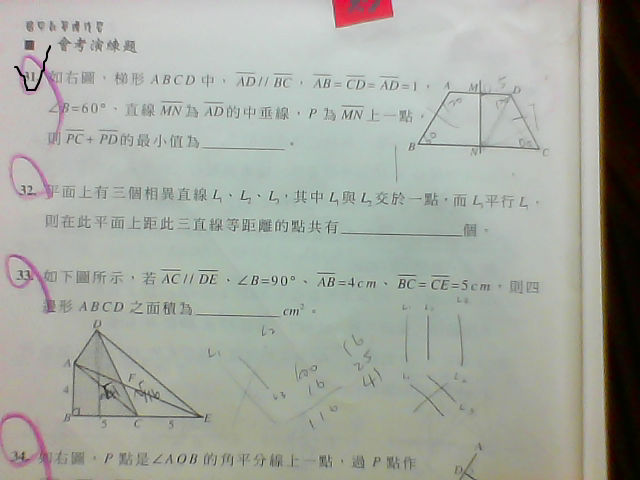 ■ 會考演練題
31. 如右圖,梯形ABCD中,AD//BC,AB=CD=AD=1,
∠B=60°、直線MN為AD的中垂線,P為MN上一點,
則PC+PD的最小值為__________。
A M D
B N C
32. 平面上有三個相異直線L、L、L,其中L與L交於一點,而L平行L,
則在此平面上距此三直線等距離的點共有__________個。
33. 如下圖所示,若AC//DE、∠B=90°、AB=4cm、BC=CE=5cm,則四
邊形ABCD之面積為__________cm²。
D
A
F
4
B C E
5 5
L1 L2 L3
100
16
116
16
25
41
34. 如右圖,P點是∠AOB的角平分線上一點,過P點作
A
D